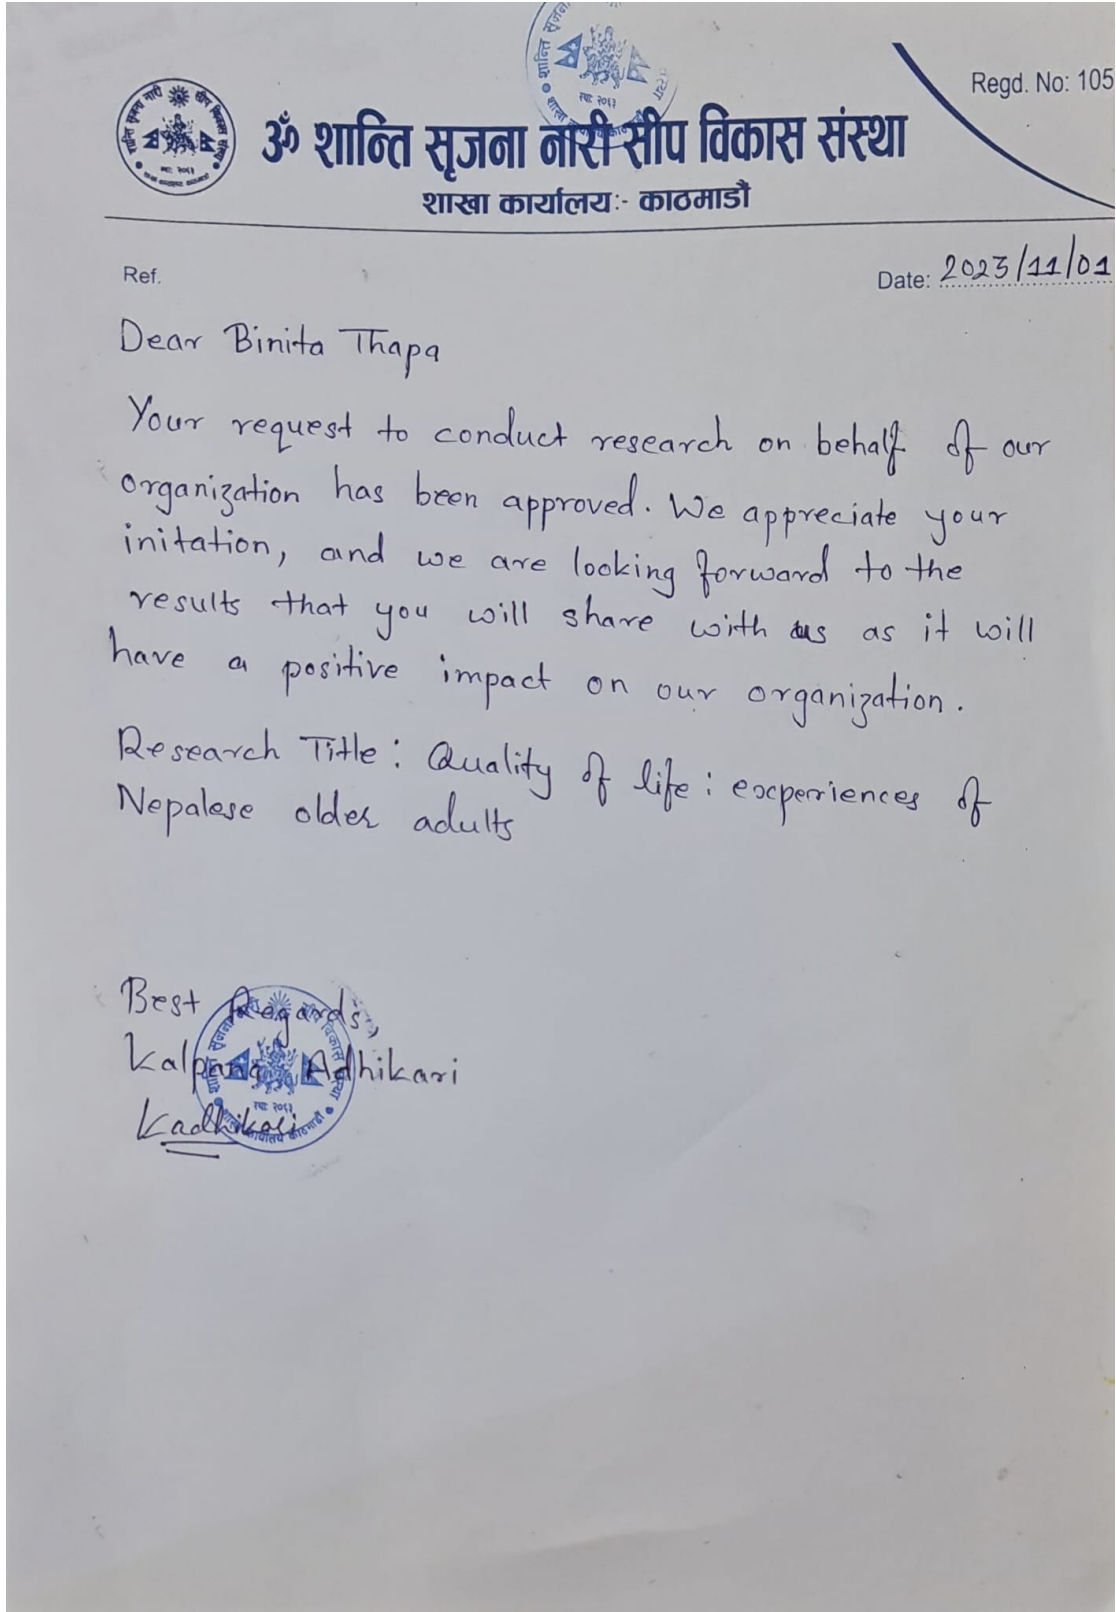 Regd. No: 105
ॐ शान्ति सृजना नारी सीप विकास संस्था
शाखा कार्यालयः- काठमाडौं
Ref.
Date: 2023/11/01
Dear Binita Thapa
Your request to conduct research on behalf of our
organization has been approved. We appreciate your
initation, and we are looking forward to the
results that you will share with us as it will
have a positive impact on our organization.
Research Title: Quality of life: experiences of
Nepalese older adults
Best Regards,
Kalpana Adhikari
Kadhikari